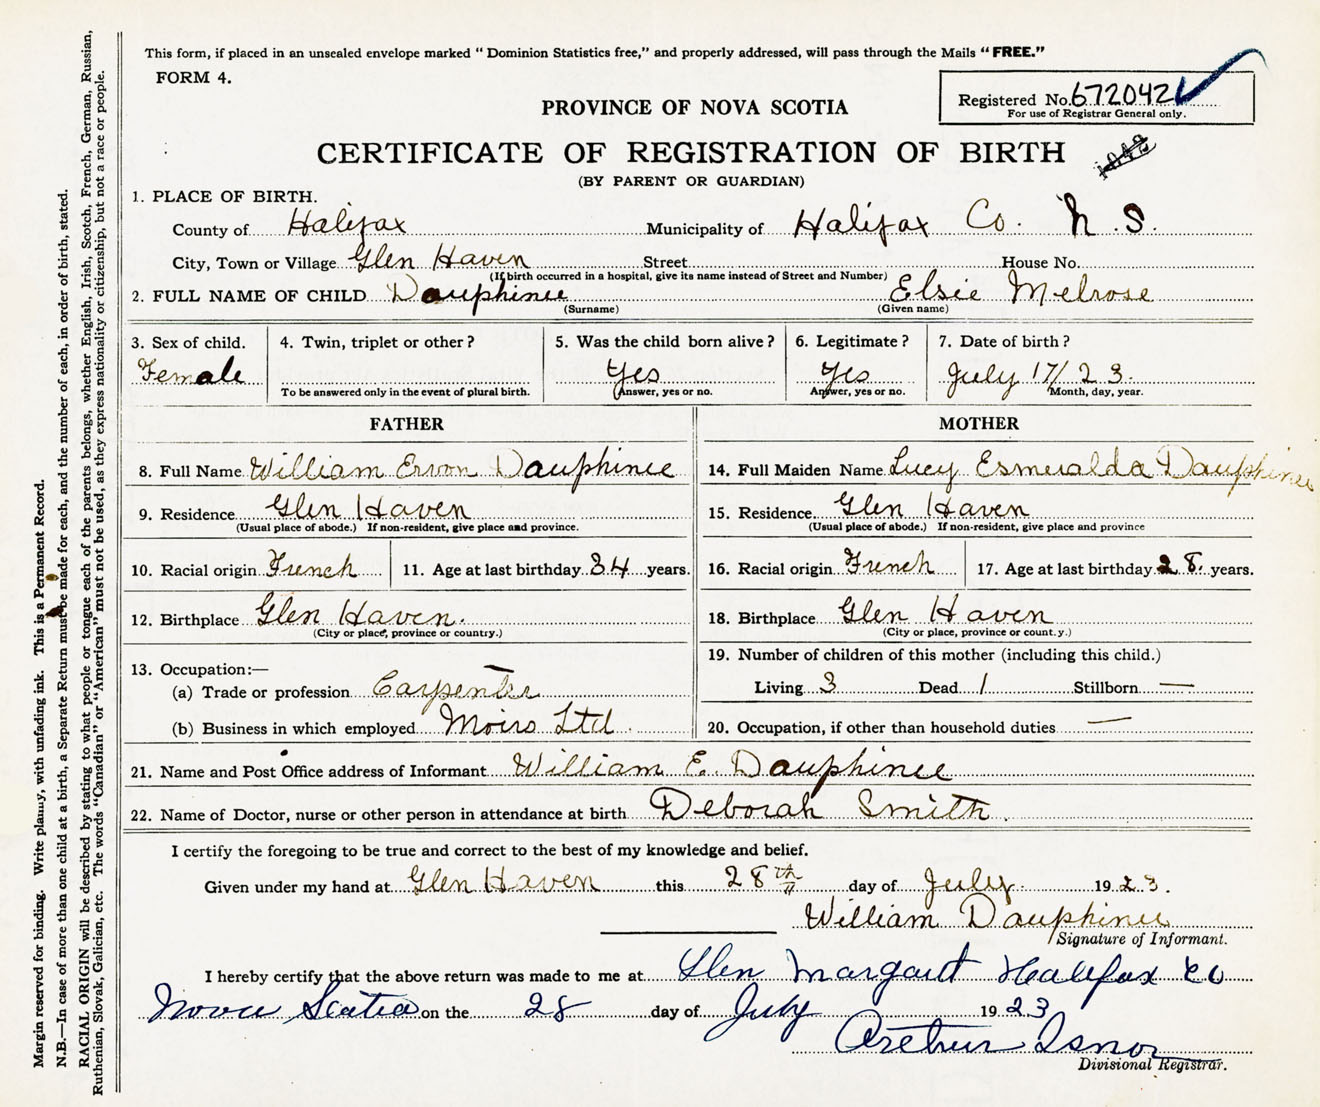 This form, if placed in an unsealed envelope marked "Dominion Statistics free," and properly addressed, will pass through the Mails "FREE."
FORM 4.
Registered No. 672042
For use of Registrar General only.
PROVINCE OF NOVA SCOTIA
CERTIFICATE OF REGISTRATION OF BIRTH
(BY PARENT OR GUARDIAN)
1. PLACE OF BIRTH.
County of Halifax Municipality of Halifax Co. N.S.
City, Town or Village Glen Haven Street House No.
(If birth occurred in a hospital, give its name instead of Street and Number)
2. FULL NAME OF CHILD Dauphinee Elsie Melrose
(Surname) (Given name)
3. Sex of child. 4. Twin, triplet or other? 5. Was the child born alive? 6. Legitimate? 7. Date of birth?
Female Yes Yes July 17/23.
To be answered only in the event of plural birth. Answer, yes or no. Answer, yes or no. Month, day, year.
FATHER MOTHER
8. Full Name William Ervon Dauphinee 14. Full Maiden Name Lucy Esmeralda Dauphinee
9. Residence Glen Haven 15. Residence Glen Haven
(Usual place of abode.) If non-resident, give place and province. (Usual place of abode.) If non-resident, give place and province
10. Racial origin French 11. Age at last birthday 34 years. 16. Racial origin French 17. Age at last birthday 28. years.
12. Birthplace Glen Haven. 18. Birthplace Glen Haven
(City or place, province or country.) (City or place, province or count.y.)
13. Occupation:— 19. Number of children of this mother (including this child.)
(a) Trade or profession Carpenter Living 3 Dead 1 Stillborn —
(b) Business in which employed Moirs Ltd. 20. Occupation, if other than household duties —
21. Name and Post Office address of Informant William E. Dauphinee
22. Name of Doctor, nurse or other person in attendance at birth Deborah Smith.
I certify the foregoing to be true and correct to the best of my knowledge and belief.
Given under my hand at Glen Haven this 28th day of July. 1923.
William Dauphinee
Signature of Informant.
I hereby certify that the above return was made to me at Glen Margaret Halifax Co
Nova Scotia on the 28 day of July 1923
Arthur Isnor
Divisional Registrar.
Margin reserved for binding. Write plainly, with unfading ink. This is a Permanent Record.
N.B.—In case of more than one child at a birth, a Separate Return must be made for each, and the number of each, in order of birth, stated.
RACIAL ORIGIN will be described by stating to what people or tongue each of the parents belongs, whether English, Irish, Scotch, French, German, Russian,
Ruthenian, Slovak, Galician, etc. The words "Canadian" or "American" must not be used, as they express nationality or citizenship, but not a race or people.